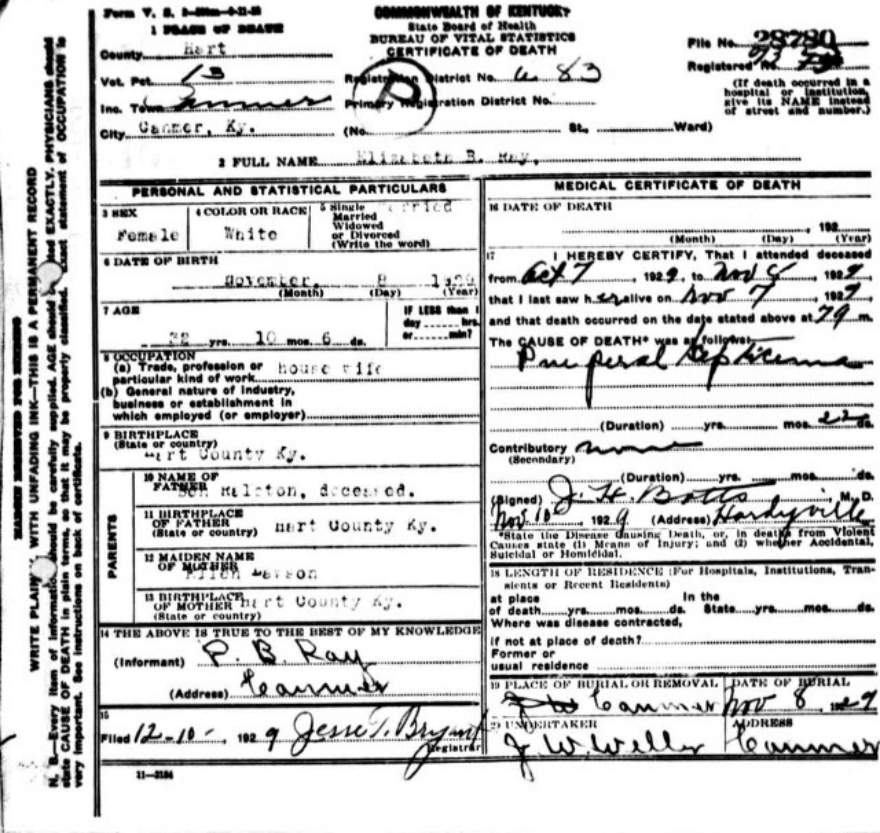 Form V. S.
COMMONWEALTH OF KENTUCKY
State Board of Health
BUREAU OF VITAL STATISTICS
CERTIFICATE OF DEATH
1 PLACE OF DEATH
County Hart
Vot. Pct. 13
Inc. Town Canmer
City Canmer, Ky.
Registration District No. 683
Primary Registration District No.
(No. St., Ward)
File No. 28780
Registered No.
(If death occurred in a
hospital or institution,
give its NAME instead
of street and number.)
2 FULL NAME Elizabeth B. Ray,
PERSONAL AND STATISTICAL PARTICULARS
3 SEX
Female
4 COLOR OR RACE
White
5 Single Married
Married
Widowed
or Divorced
(Write the word)
6 DATE OF BIRTH
November, 8
(Month) (Day) (Year)
7 AGE
yrs. 10 mos. 6 ds.
IF LESS than 1
day hrs.
or min?
8 OCCUPATION
(a) Trade, profession or
particular kind of work house wife
(b) General nature of industry,
business or establishment in
which employed (or employer)
9 BIRTHPLACE
(State or country)
Hart County Ky.
PARENTS
10 NAME OF
FATHER
Ralston, deceased.
11 BIRTHPLACE
OF FATHER Hart County Ky.
(State or country)
12 MAIDEN NAME
OF MOTHER
Ellen
13 BIRTHPLACE
OF MOTHER Hart County Ky.
(State or country)
14 THE ABOVE IS TRUE TO THE BEST OF MY KNOWLEDGE
(Informant) P. B. Ray
(Address) Canmer
15
Filed 12-10- 1929 Jesse T. Bryant
Registrar
11-3184
MEDICAL CERTIFICATE OF DEATH
16 DATE OF DEATH
, 192
(Month) (Day) (Year)
17 I HEREBY CERTIFY, That I attended deceased
from Oct 7 1929, to Nov 8, 1929
that I last saw her alive on Nov 7, 1929
and that death occurred on the date stated above at m.
The CAUSE OF DEATH* was as follows:
Puerperal Septicemia
(Duration) yrs. mos. 22 ds.
Contributory none
(Secondary)
(Duration) yrs. mos. ds.
(Signed) J. H. Botts, M. D.
Nov. 10, 1929 (Address) Hardyville
*State the Disease Causing Death, or, in deaths from Violent
Causes state (1) Means of Injury; and (2) whether Accidental,
Suicidal or Homicidal.
18 LENGTH OF RESIDENCE (For Hospitals, Institutions, Tran-
sients or Recent Residents)
at place In the
of death yrs. mos. ds. State yrs. mos. ds.
Where was disease contracted,
if not at place of death?
Former or
usual residence
19 PLACE OF BURIAL OR REMOVAL
Canmer
DATE OF BURIAL
Nov 8 1929
20 UNDERTAKER
J. W. Weller
ADDRESS
Canmer
P
MARGIN RESERVED FOR BINDING
WRITE PLAINLY, WITH UNFADING INK—THIS IS A PERMANENT RECORD
N. B.—Every item of information should be carefully supplied. AGE should be stated EXACTLY. PHYSICIANS should
state CAUSE OF DEATH in plain terms, so that it may be properly classified. Exact statement of OCCUPATION is
very important. See instructions on back of certificate.